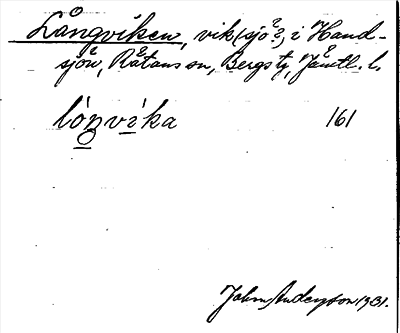 Långviken, vik (sjö?), i Hand-
sjön, Rätans sn, Bergs tg, Jämtl. l.
lóŋvika 161
John Anderson 1931.